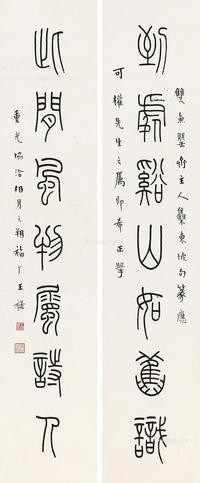 雙魚罌齋主人集東坡句篆應
到處谿山如舊識
可權先生之屬即希正擘
此閒風物屬詩人
重光協洽相月之朔福厂王禔